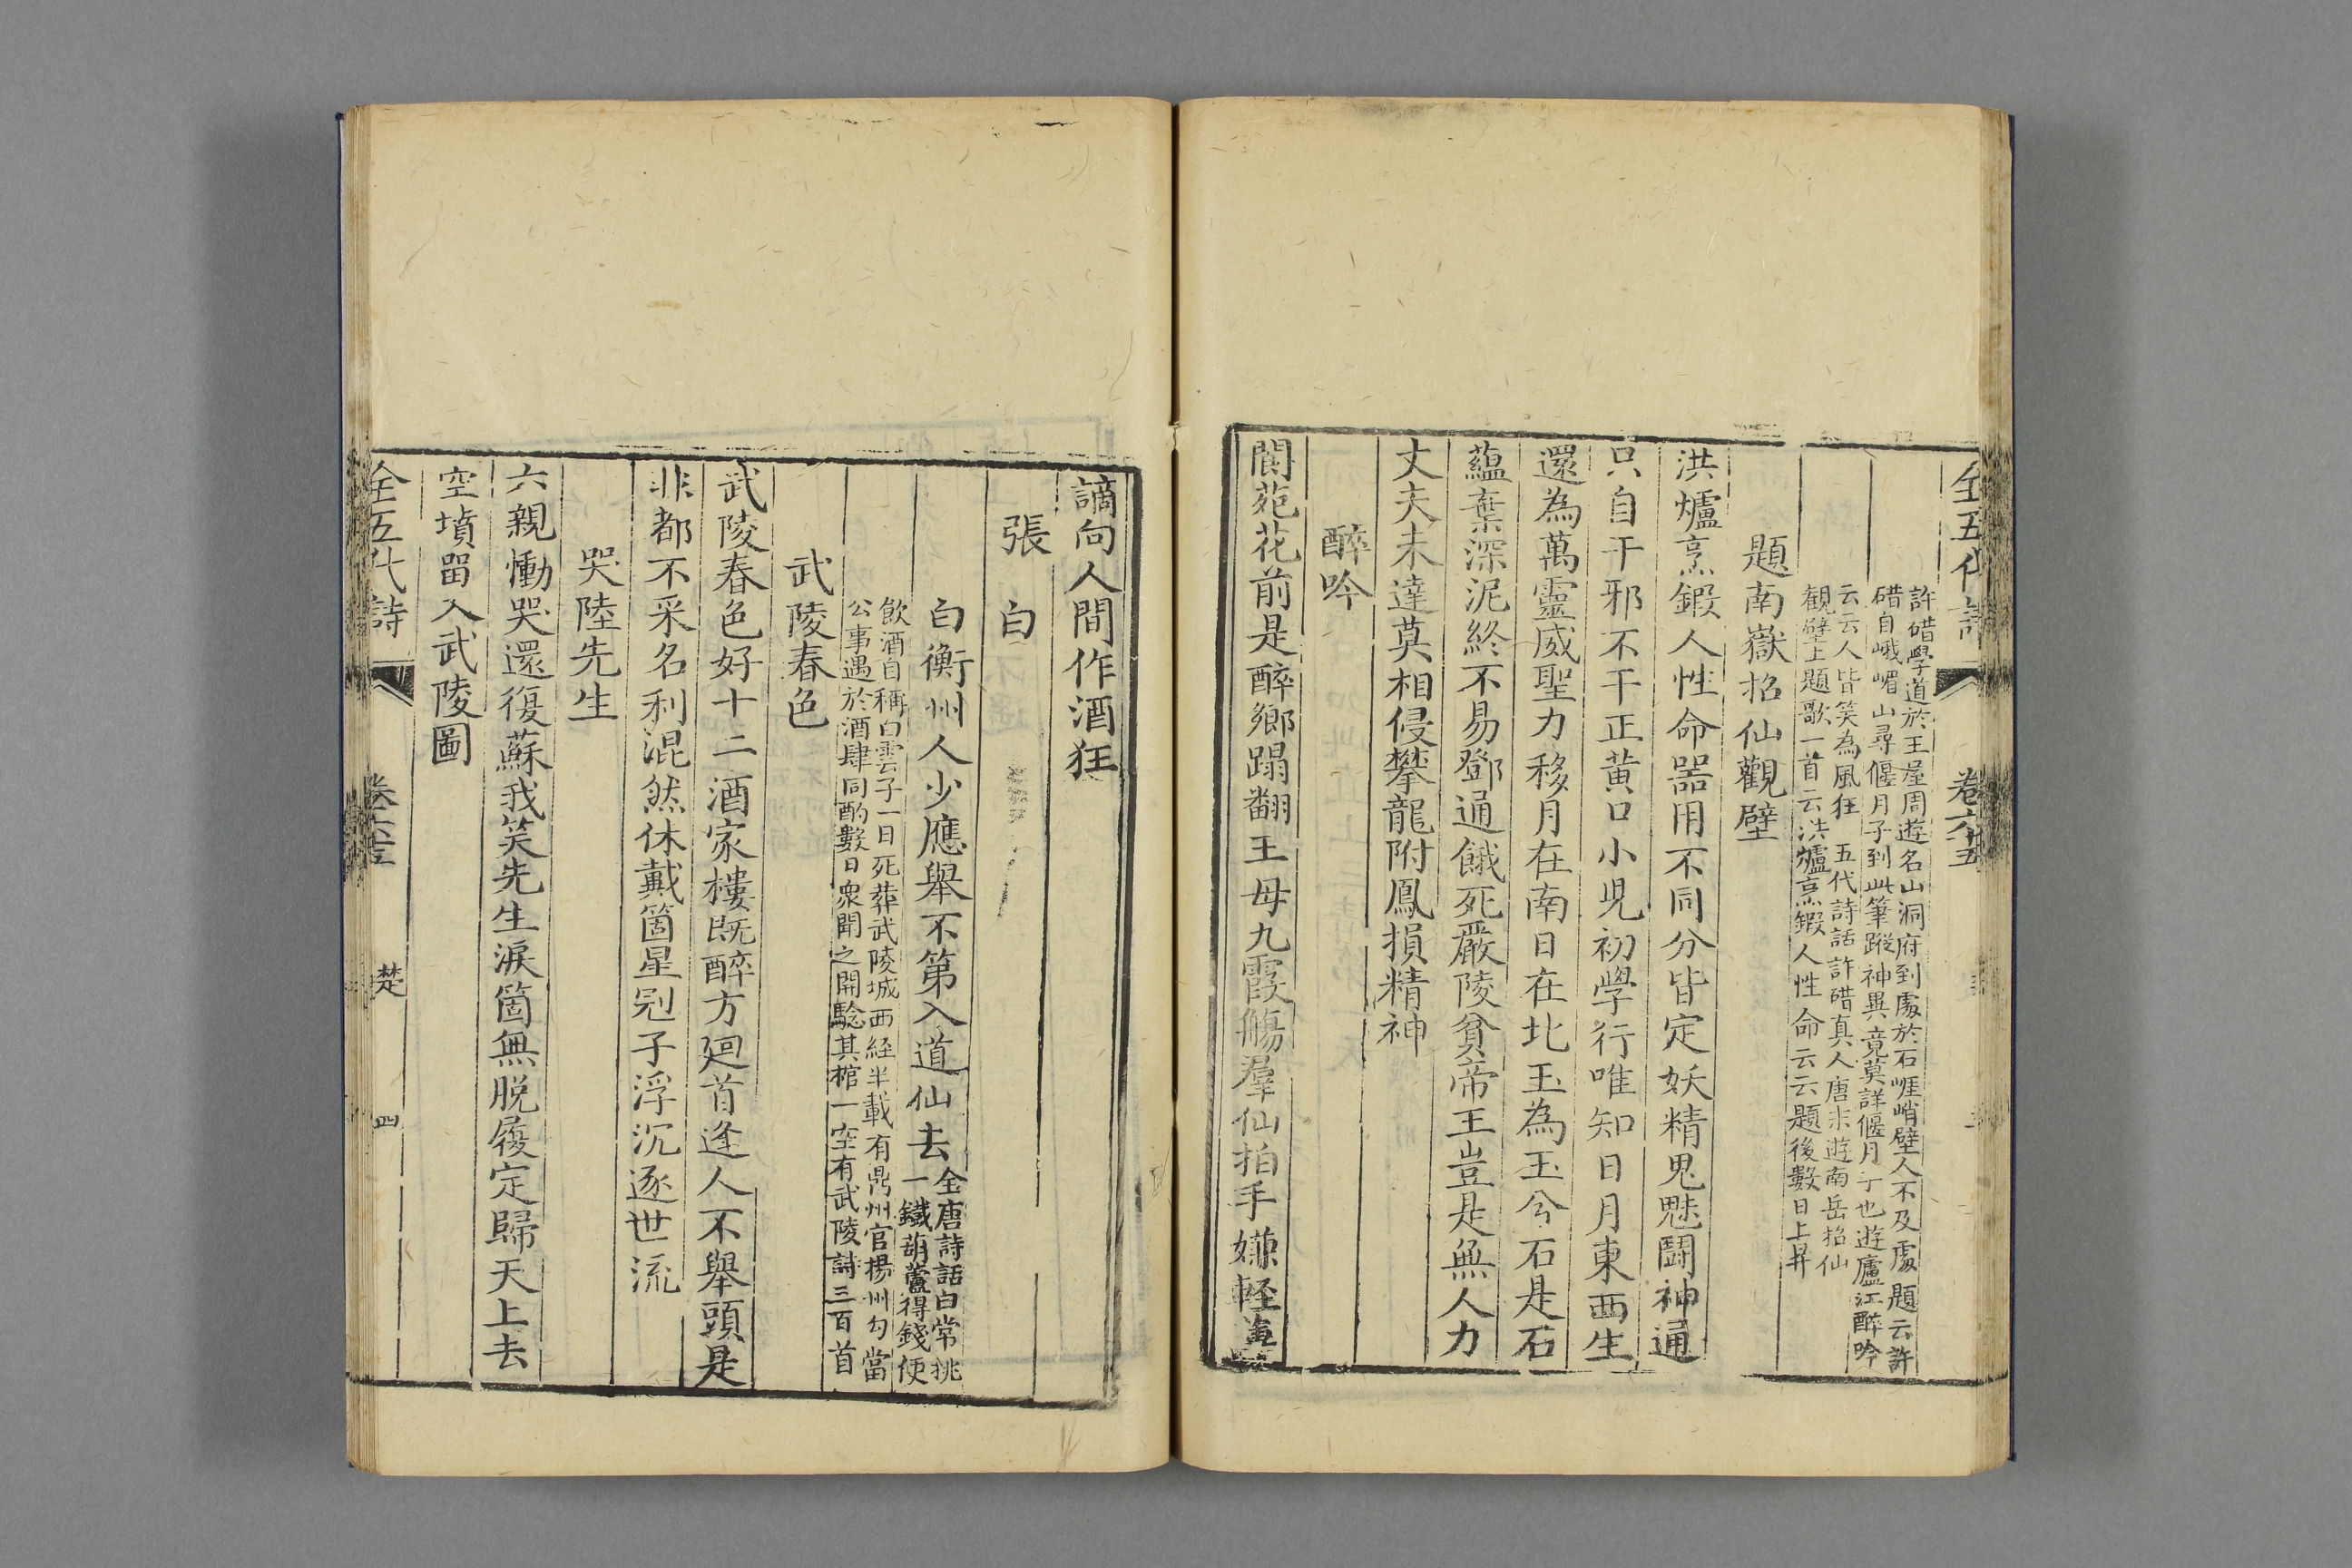 全五代詩 卷六十五
許碏學道於王屋周遊名山洞府到處於石崕峭壁人不及處題云許
碏自峨嵋山尋偃月子到此筆蹤神異竟莫詳偃月子也遊廬江醉吟
云云人皆笑為風狂 五代詩話許碏真人唐末遊南岳招仙
觀壁上題歌一首云洪爐烹鍜人性命云云題後數日上昇
題南嶽招仙觀壁
洪爐烹鍜人性命器用不同分皆定妖精鬼魅鬪神通
只自干邪不干正黃口小児初學行唯知日月東西生
還為萬靈威聖力移月在南日在北玉為玉兮石是石
蘊棄深泥終不易鄧通餓死嚴陵貧帝王豈是無人力
丈夫未達莫相侵攀龍附鳳損精神
醉吟
閬苑花前是醉鄉蹋翻王母九霞觴羣仙拍手嫌輕薄
謫向人間作酒狂
張 白
白衡州人少應舉不第入道仙去
全唐詩話白常挑
一鐵葫蘆得錢便
飲酒自稱白雲子一日死葬武陵城西経半載有鼎州官楊州勾當
公事遇於酒肆同酌數日衆聞之開騐其棺一空有武陵詩三百首
武陵春色
武陵春色好十二酒家樓既醉方廻首逢人不舉頭是
非都不采名利混然休戴箇星冠子浮沉逐世流
哭陸先生
六親慟哭還復蘇我笑先生淚箇無脱履定歸天上去
空墳畱入武陵圖
全五代詩 卷六十五 楚 四